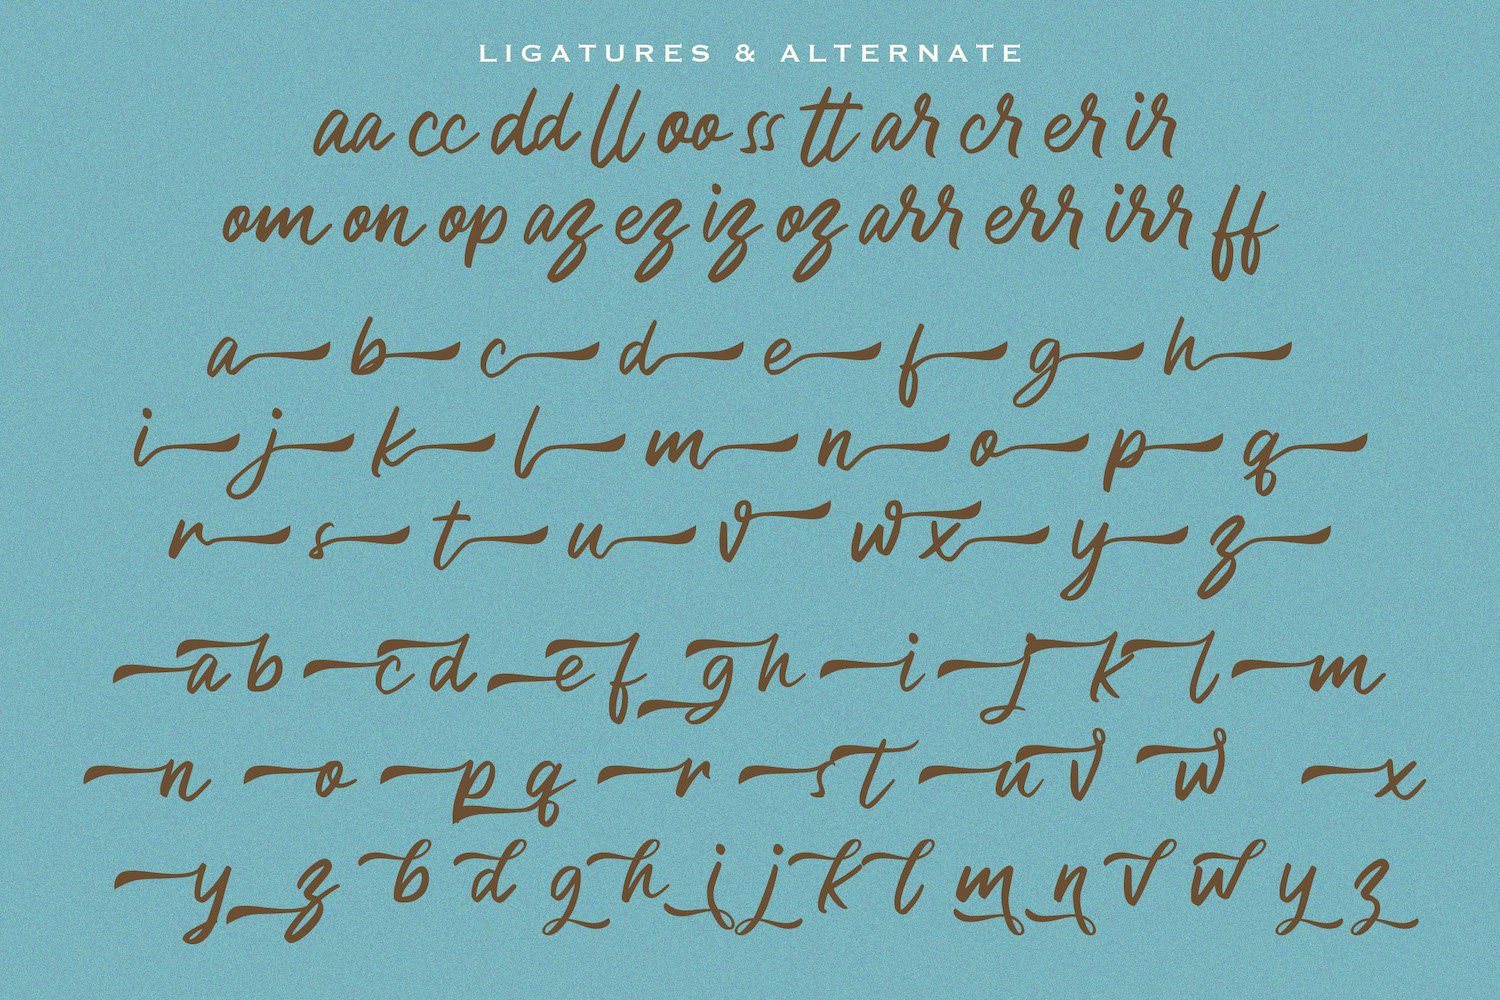 LIGATURES & ALTERNATE
aa cc dd ll oo ss tt ar cr er ir
om on op az ez iz oz arr err irr ff
a b c d e f g h
i j k l m n o p q
r s t u v w x y z
a b c d e f g h i j k l m
n o p q r s t u v w x
y z b d g h i j k l m n v w y z